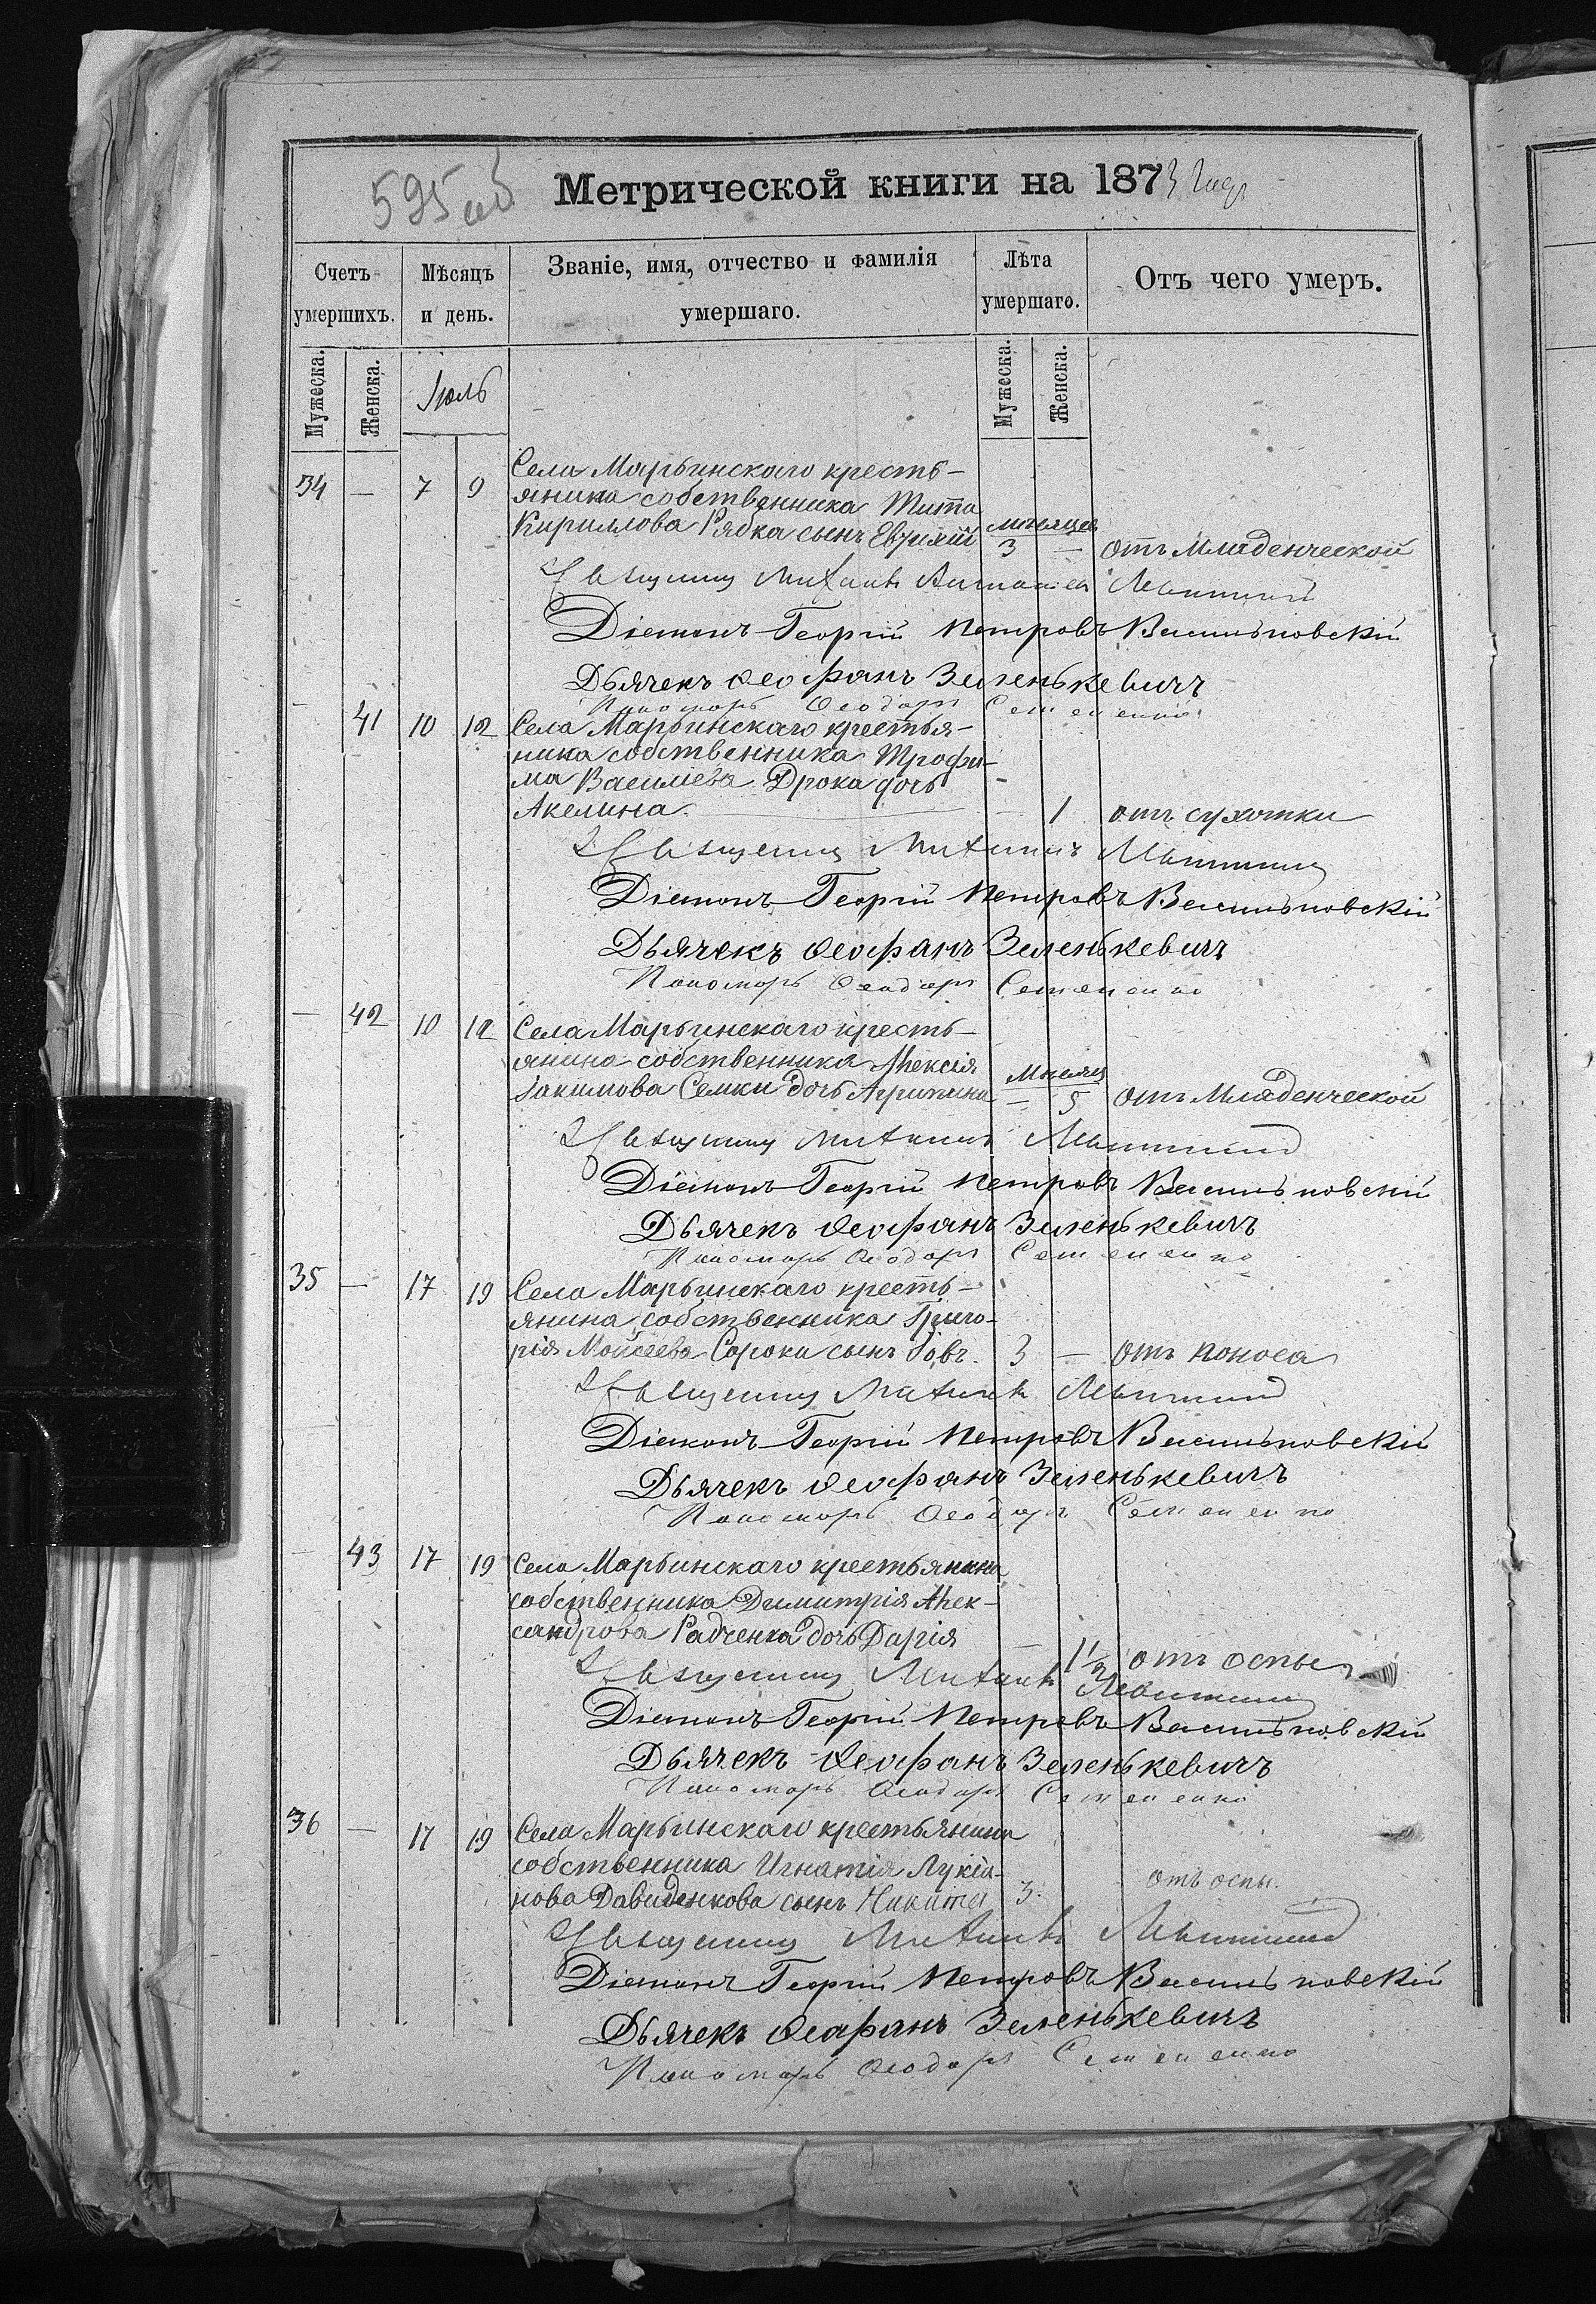 595 об
Метрической книги на 1873 годъ
Счетъ умершихъ.
Мѣсяцъ и день.
Званіе, имя, отчество и фамилія умершаго.
Лѣта умершаго.
Отъ чего умеръ.
Мужеска. Женска. Іюль Мужеска. Женска.
Села Марьинскаго кресть-
34 — 7 9 янина собственника Тита
Кириллова Рябка сынъ мѣсяцев
3 — отъ младенческой
Священникъ Михаилъ
Діаконъ Георгій Петровъ Васильковскій
Дьячекъ Ѳеофанъ Зеленькевичъ
Пономарь Ѳеодоръ Семененко
— 41 10 12 Села Марьинскаго крестья-
нина собственника Трофи-
ма Василіева Дрока дочь
Акелина. — 1 отъ сухотки
Священникъ Михаилъ
Діаконъ Георгій Петровъ Васильковскій
Дьячекъ Ѳеофанъ Зеленькевичъ
Пономарь Ѳеодоръ Семененко
— 42 10 12 Села Марьинскаго кресть-
янина собственника Алексія
Іакимова Семки дочь Агрипина мѣсяц
— 5 отъ младенческой
Священникъ Михаилъ
Діаконъ Георгій Петровъ Васильковскій
Дьячекъ Ѳеофанъ Зеленькевичъ
Пономарь Ѳеодоръ Семененко
35 — 17 19 Села Марьинскаго кресть-
янина собственника Григо-
рія Мойсеева Сороки сынъ Іовъ. 3 — отъ поноса
Священникъ Михаилъ
Діаконъ Георгій Петровъ Васильковскій
Дьячекъ Ѳеофанъ Зеленькевичъ
Пономарь Ѳеодоръ Семененко
— 43 17 19 Села Марьинскаго крестьянина
собственника Димитрія Алек-
сандрова Радченка дочь Дарія
— 1½ отъ оспы
Священникъ Михаилъ
Діаконъ Георгій Петровъ Васильковскій
Дьячекъ Ѳеофанъ Зеленькевичъ
Пономарь Ѳеодоръ Семененко
36 — 17 19 Села Марьинскаго крестьянина
собственника Игнатія Лукіа-
нова Давиденкова сынъ Никита 3. отъ оспы.
Священникъ Михаилъ
Діаконъ Георгій Петровъ Васильковскій
Дьячекъ Ѳеофанъ Зеленькевичъ
Пономарь Ѳеодоръ Семененко